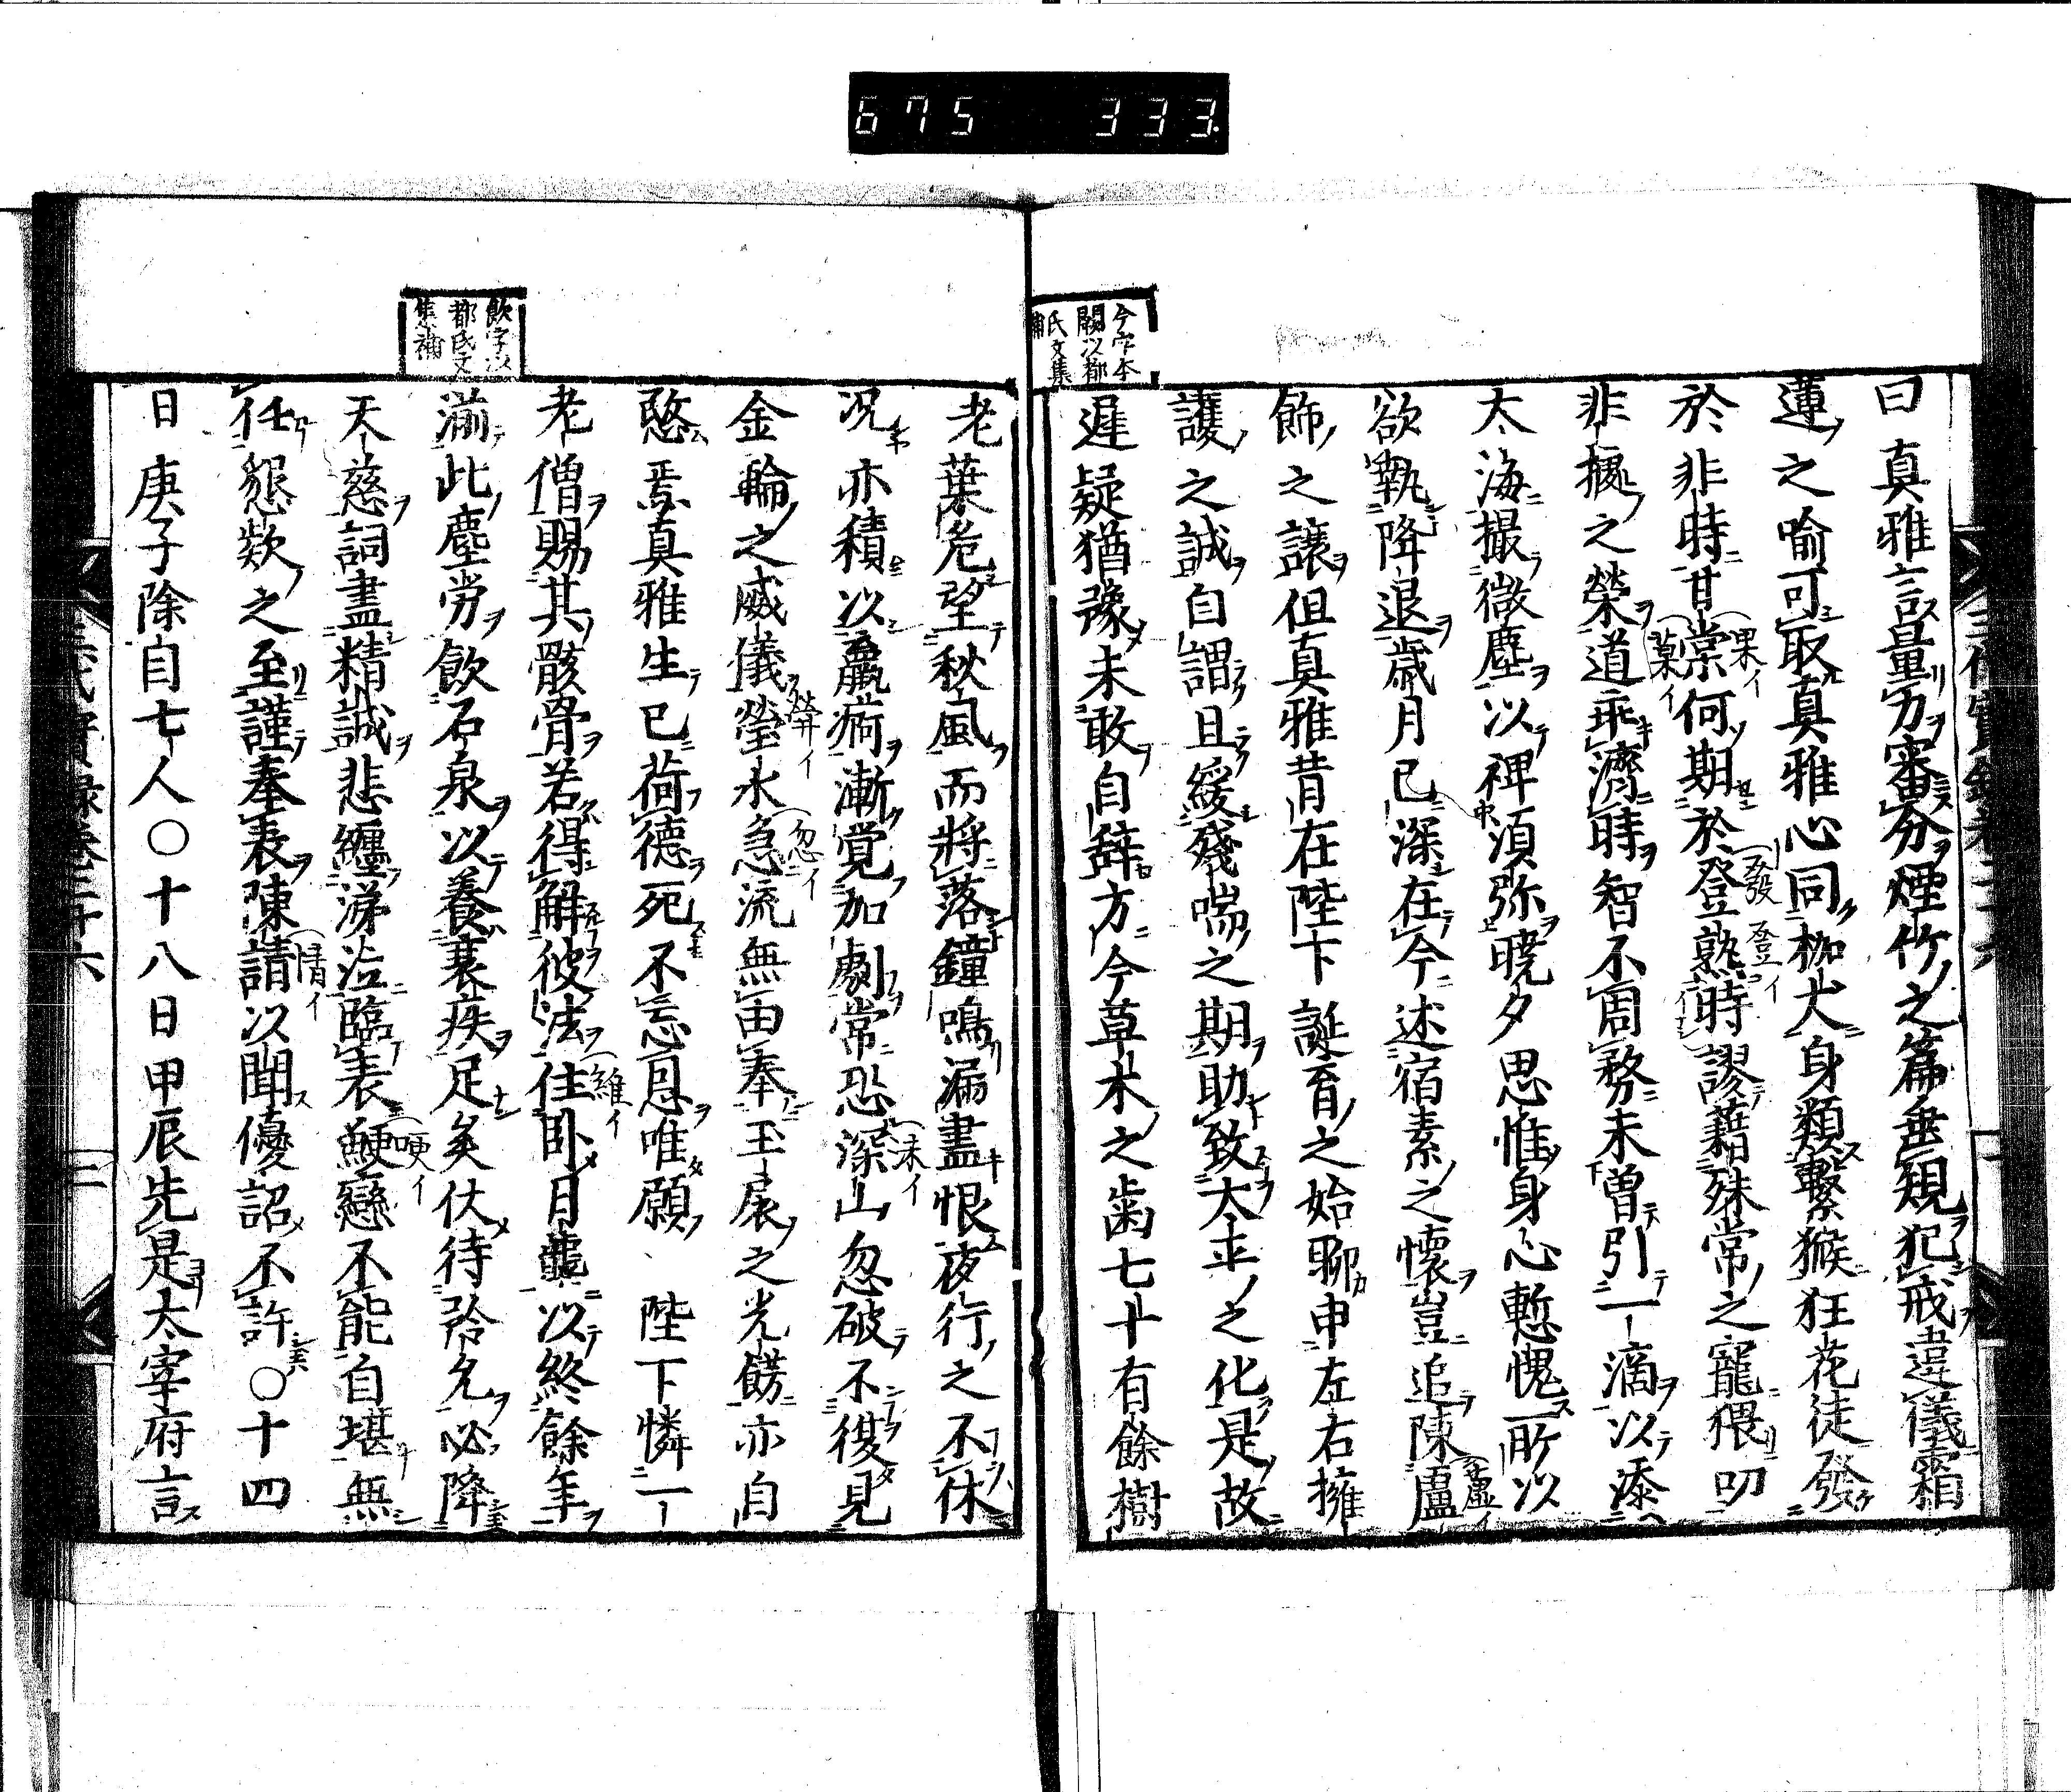 675 333
今字本
闕以都
氏文集
補
曰真雅言量力審分煙竹之篇垂規犯戒違儀霜
蓮之喻可取真雅心同枷犬身類繫猴狂花徒發
於非時甘棠何期於登熟時謬藉殊常之寵猥叨
非據之榮道乖濟時智不周務未曾引一滴以添
太海撮微塵以裨須弥曉夕思惟身心慙愧所以
欲執降退歲月已深在今述宿素之懷豈追陳盧
飾之讓但真雅昔在陛下誕育之始聊申左右擁
護之誠自謂且緩殘喘之期助致太平之化是故
遲疑猶豫未敢自辭方今草木之歯七十有餘樹
飲字以
都氏文
集補
老葉危望秋風而將落鐘鳴漏盡恨夜行之不休
况亦積以羸痾漸覚加劇常恐深山忽破不復見
金輪之威儀瑩水急流無由奉玉扆之光餝亦自
愍焉真雅生已荷德死不忘恩唯願 陛下憐一
老僧賜其骸骨若得解彼法住卧月龕以終餘年
湔此塵労飲石泉以養衰疾足矣伏待矜允必降
天慈詞盡精誠悲纏涕泣臨表鯁戀不能自堪無
任懇欵之至謹奉表陳請以聞優詔不許〇十四
日庚子除目七人〇十八日甲辰先是太宰府言
三代實録卷三十六 二